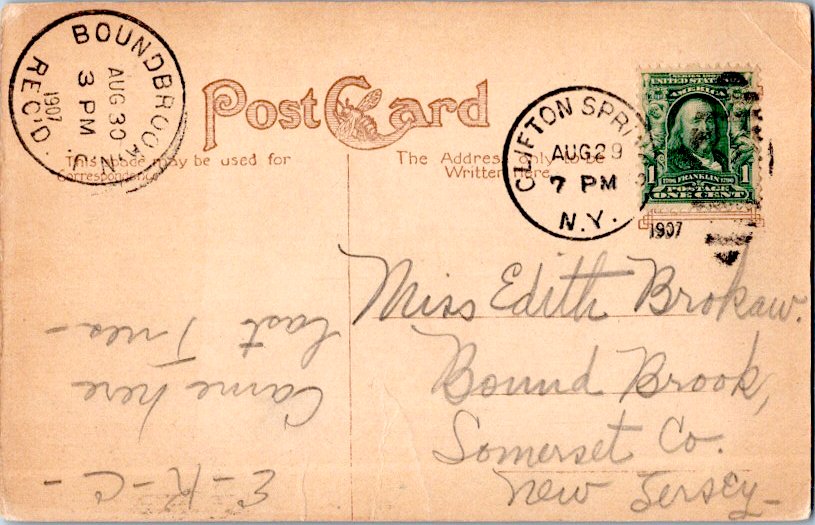 BOUNDBROOK, N.J.
AUG 30
3 PM
1907
REC'D.
Post Card
This space may be used for
Correspondence
The Address only to be
Written here.
CLIFTON SPRINGS
AUG 29
7 PM
N.Y.
1907
SERIES 1902
UNITED STATES OF
AMERICA
1706 FRANKLIN 1790
1 POSTAGE 1
ONE CENT
Miss Edith Brokaw.
Bound Brook,
Somerset Co.
New Jersey-
E-R-C-
Came here
last Tues-